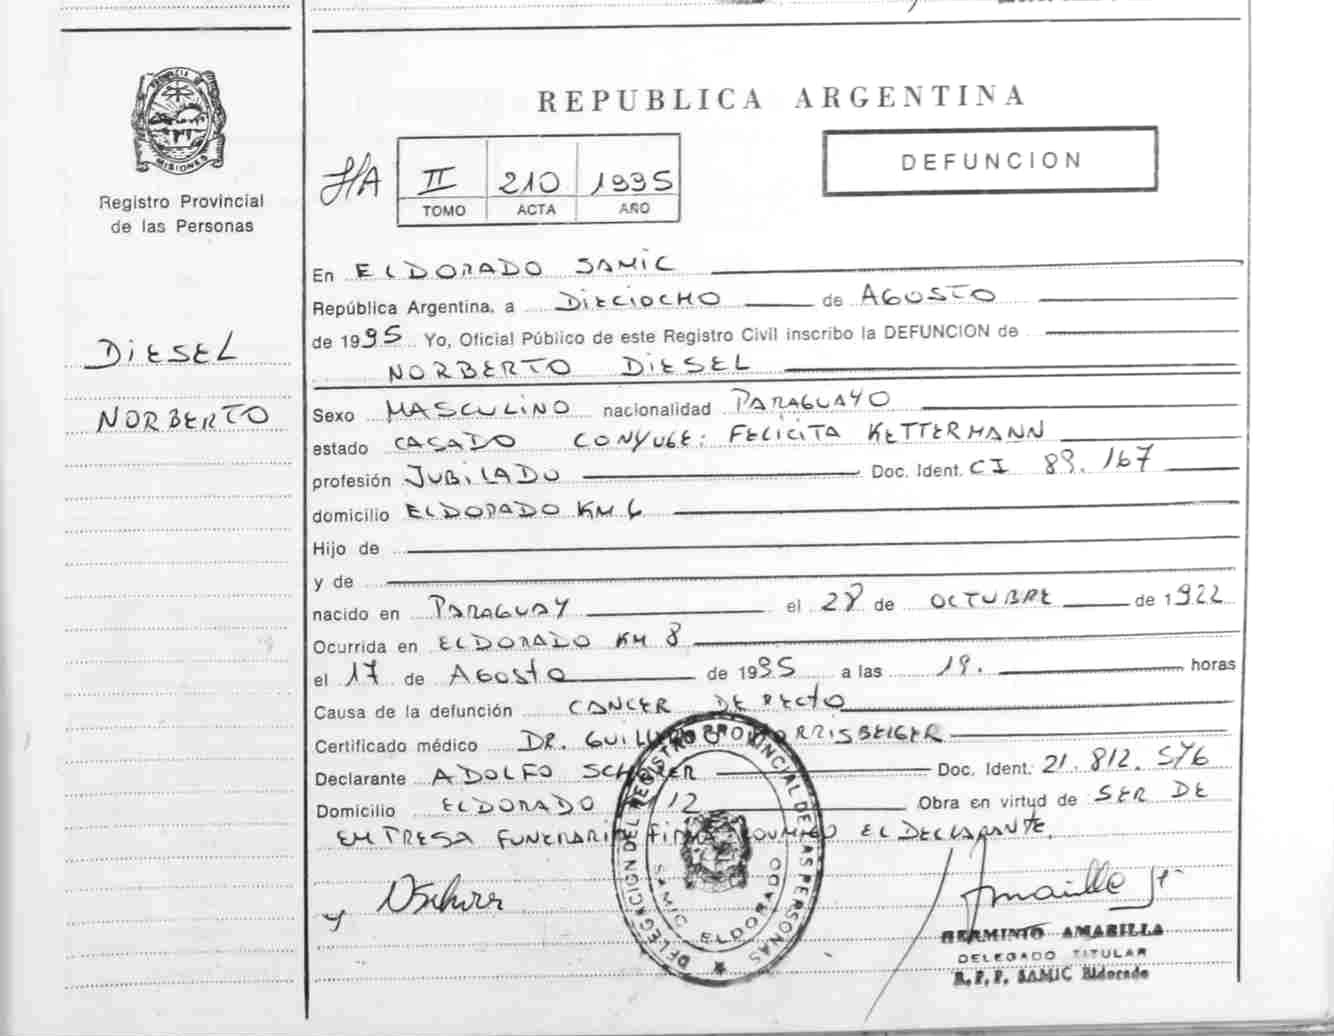 REPUBLICA ARGENTINA
PROVINCIA DE MISIONES
Registro Provincial
de las Personas
DEFUNCION
II 210 1995
TOMO ACTA AÑO
DIESEL
NORBERTO
En ELDORADO SAMIC
República Argentina, a DIECIOCHO de AGOSTO
de 1995 Yo, Oficial Público de este Registro Civil inscribo la DEFUNCION de
NORBERTO DIESEL
Sexo MASCULINO nacionalidad PARAGUAYO
estado CASADO CONYUGE: FELICITA KETTERMANN
profesión JUBILADO Doc. Ident. CI 89.167
domicilio ELDORADO KM 6
Hijo de
y de
nacido en PARAGUAY el 28 de OCTUBRE de 1922
Ocurrida en ELDORADO KM 8
el 17 de AGOSTO de 1995 a las 19. horas
Causa de la defunción CANCER DE RECTO
Certificado médico DR.
Declarante ADOLFO Doc. Ident. 21.812.546
Domicilio ELDORADO 12 Obra en virtud de SER DE
EMPRESA FUNERARIA FIRMA CONMIGO EL DECLARANTE.
DELEGACION DEL REGISTRO PROVINCIAL DE LAS PERSONAS
SAMIC ELDORADO
HERMINIO AMARILLA
DELEGADO TITULAR
R.P.P. SAMIC Eldorado